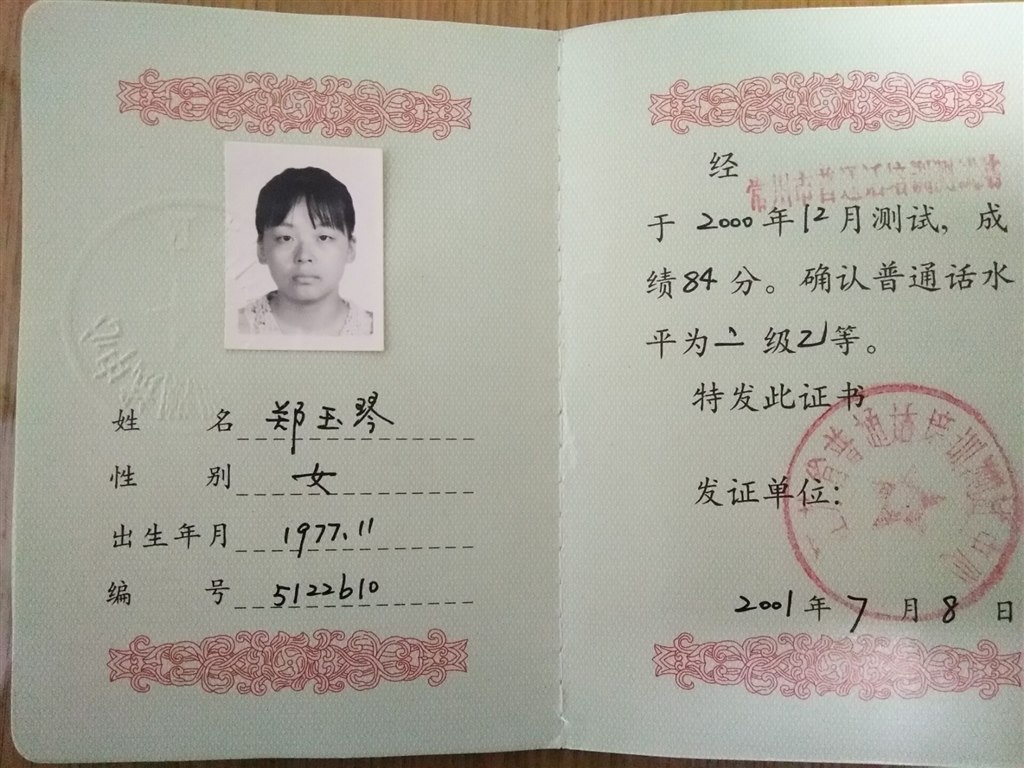 姓 名 郑玉琴
性 别 女
出生年月 1977.11
编 号 5122610
经 常州市
于 2000 年 12 月测试，成
绩 84 分。确认普通话水
平为 二 级 乙 等。
特发此证书
发证单位：
普通话培训
2001 年 7 月 8 日